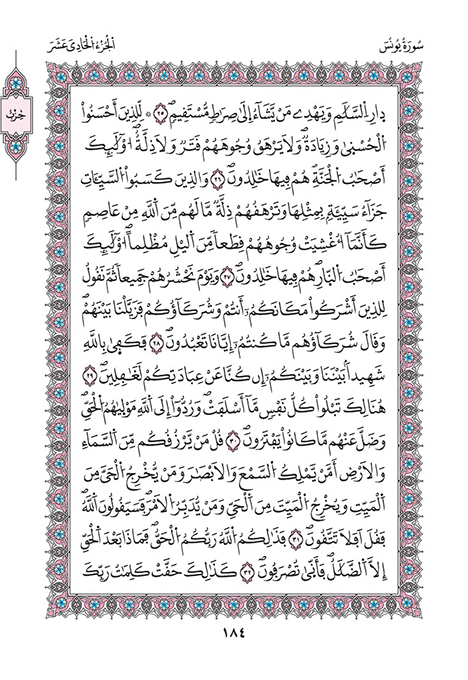 سُورَةُ يُونُسَ
الْجُزْءُ الْحَادِي عَشَرَ
حِزْب
دِارِ اِ۬لسَّلَٰمِ وَيَهْدِے مَنْ يَّشَآءُ اِلَىٰ صِرَٰطٖ مُّسْتَقِيمٖۖ ٢٥ ۞ لِّلذِينَ أَحْسَنُواْ
اُ۬لْحُسْنَىٰ وَزِيَادَةٞۖ وَلَا يَرْهَقُ وُجُوهَهُمْ قَتَرٞ وَلَا ذِلَّةٌۖ ا۟وْلَٰٓئِكَ
أَصْحَٰبُ اُ۬لْجَنَّةِ هُمْ فِيهَا خَٰلِدُونَۖ ٢٦ وَالذِينَ كَسَبُواْ اُ۬لسَّيِّـَٔاتِ
جَزَآءُ سَيِّئَةِۢ بِمِثْلِهَا وَتَرْهَقُهُمْ ذِلَّةٞۖ مَّا لَهُم مِّنَ اَ۬للَّهِ مِنْ عَاصِمٖ
كَأَنَّمَآ أُغْشِيَتْ وُجُوهُهُمْ قِطَعاٗ مِّنَ اَ۬ليْلِ مُظْلِماًۖ ا۟وْلَٰٓئِكَ
أَصْحَٰبُ اُ۬لنّ۪ارِ هُمْ فِيهَا خَٰلِدُونَۖ ٢٧ وَيَوْمَ نَحْشُرُهُمْ جَمِيعاٗ ثُمَّ نَقُولُ
لِلذِينَ أَشْرَكُواْ مَكَانَكُمُۥٓ أَنتُمْ وَشُرَكَآؤُكُمْ فَزَيَّلْنَا بَيْنَهُمْ
وَقَالَ شُرَكَآؤُهُم مَّا كُنتُمُۥٓ إِيَّانَا تَعْبُدُونَۖ ٢٨ فَكَفَىٰ بِاللَّهِ
شَهِيداَۢ بَيْنَنَا وَبَيْنَكُمُۥٓ إِن كُنَّا عَنْ عِبَادَتِكُمْ لَغَٰفِلِينَۖ ٢٩
هُنَالِكَ تَبْلُواْ كُلُّ نَفْسٖ مَّآ أَسْلَفَتْۖ وَرُدُّوٓاْ إِلَى اَ۬للَّهِ مَوْلَيٰهُمُ اُ۬لْحَقِّۖ
وَضَلَّ عَنْهُم مَّا كَانُواْ يَفْتَرُونَۖ ٣٠ قُلْ مَنْ يَّرْزُقُكُم مِّنَ اَ۬لسَّمَآءِ
وَالَارْضِ أَمَّنْ يَّمْلِكُ اُ۬لسَّمْعَ وَالَابْصَٰرَ وَمَنْ يُّخْرِجُ اُ۬لْحَيَّ مِنَ
اَ۬لْمَيِّتِ وَيُخْرِجُ اُ۬لْمَيِّتَ مِنَ اَ۬لْحَيِّ وَمَنْ يُّدَبِّرُ اُ۬لَامْرَۖ فَسَيَقُولُونَ اَ۬للَّهُۖ
فَقُلَ اَفَلَا تَتَّقُونَۖ ٣١ فَذَٰلِكُمُ اُ۬للَّهُ رَبُّكُمُ اُ۬لْحَقُّۖ فَمَاذَا بَعْدَ اَ۬لْحَقِّ
إِلَّا اَ۬لضَّلَٰلُۖ فَأَنَّىٰ تُصْرَفُونَۖ ٣٢ كَذَٰلِكَ حَقَّتْ كَلِمَٰتُ رَبِّكَ
١٨٤